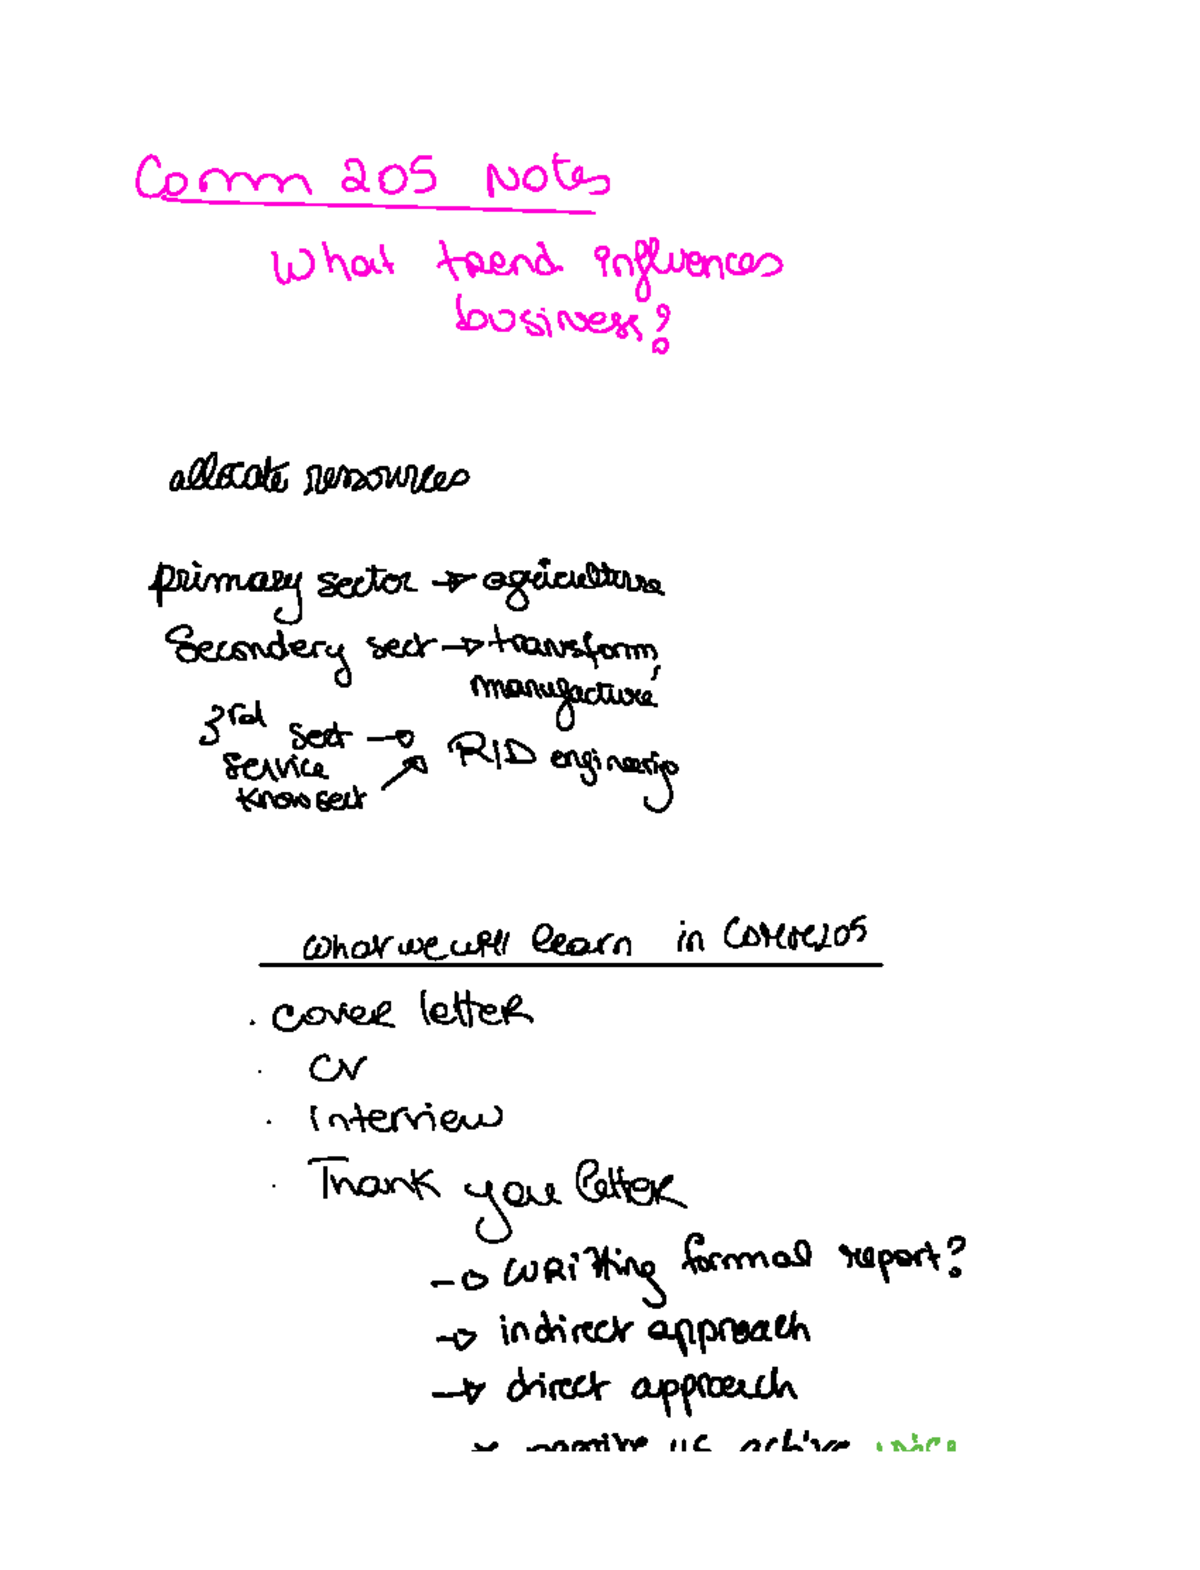 Comm 205 Notes
What trend influences
business?
allocate ressources
primary sector → agriculture
Secondery sect → transform,
manufacture
3rd sect →
service
know sect
R|D engineering
what we will learn in Comm205
. cover letter
. CV
. Interview
. Thank you letter
→ writting formal report?
→ indirect approach
→ direct approach
passive vs active voice